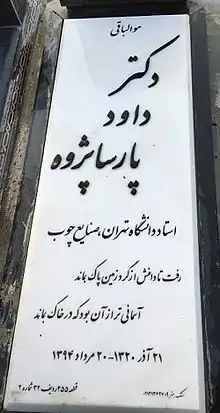 هوالباقی
دکتر
داود
پارساپژوه
استاد دانشگاه تهران، صنایع چوب
رفت تا دامنش از گرد زمین پاک بماند
آسمانی تر از آن بود که در خاک بماند
۲۱ آذر ۱۳۲۰ - ۲۰ مرداد ۱۳۹۴
قطعه ۲۵۵ ردیف ۳۲ شماره ۲